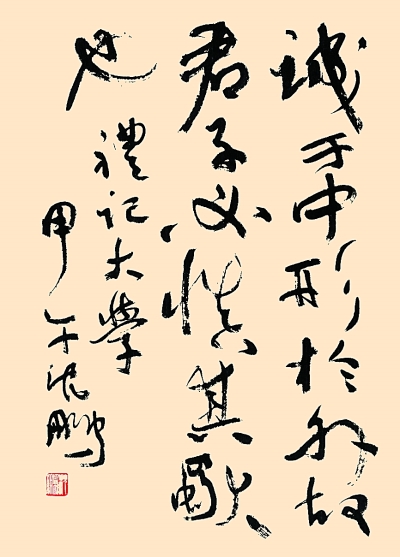 誠于中形於外故
君子必慎其獨
也
禮記大學
甲午沈鵬